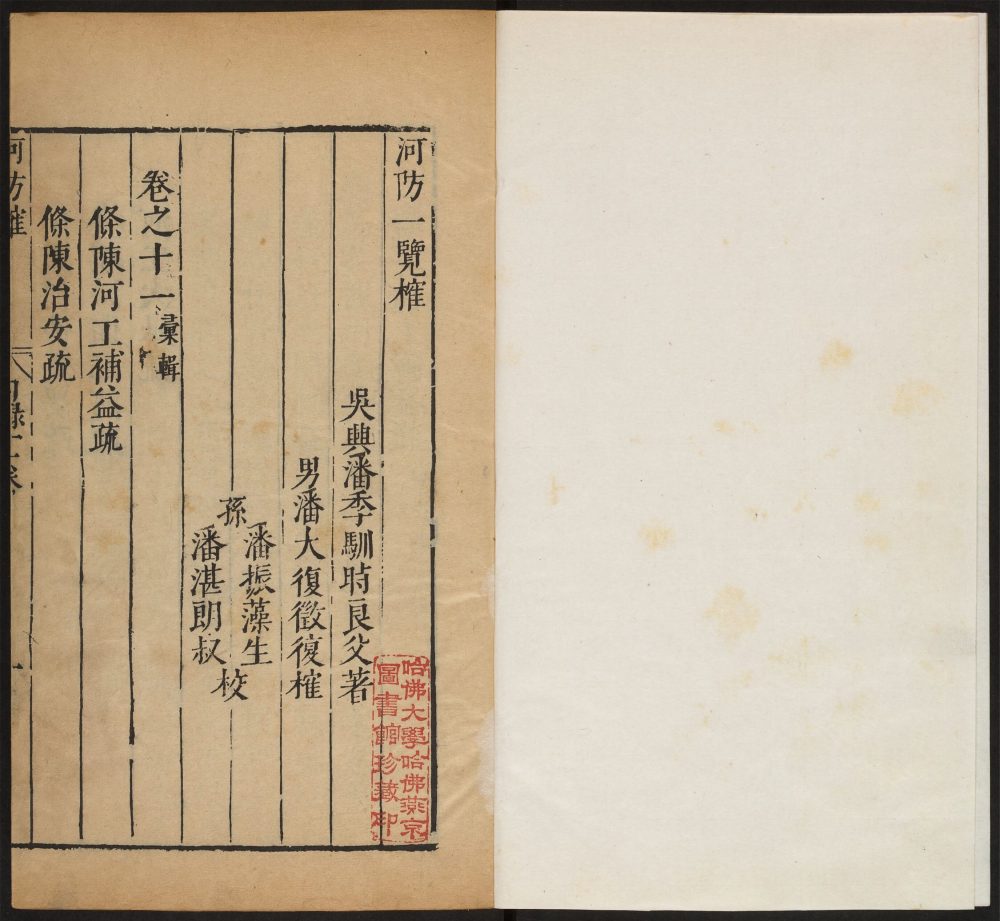 河防一覽榷
吳興潘季馴時良父著
男潘大復徵復榷
孫
潘振藻生
潘湛朗叔
校
卷之十一
彙輯
條陳河工補益疏
條陳治安疏
河防榷
一
哈佛大學哈佛燕京
圖書館珍藏印